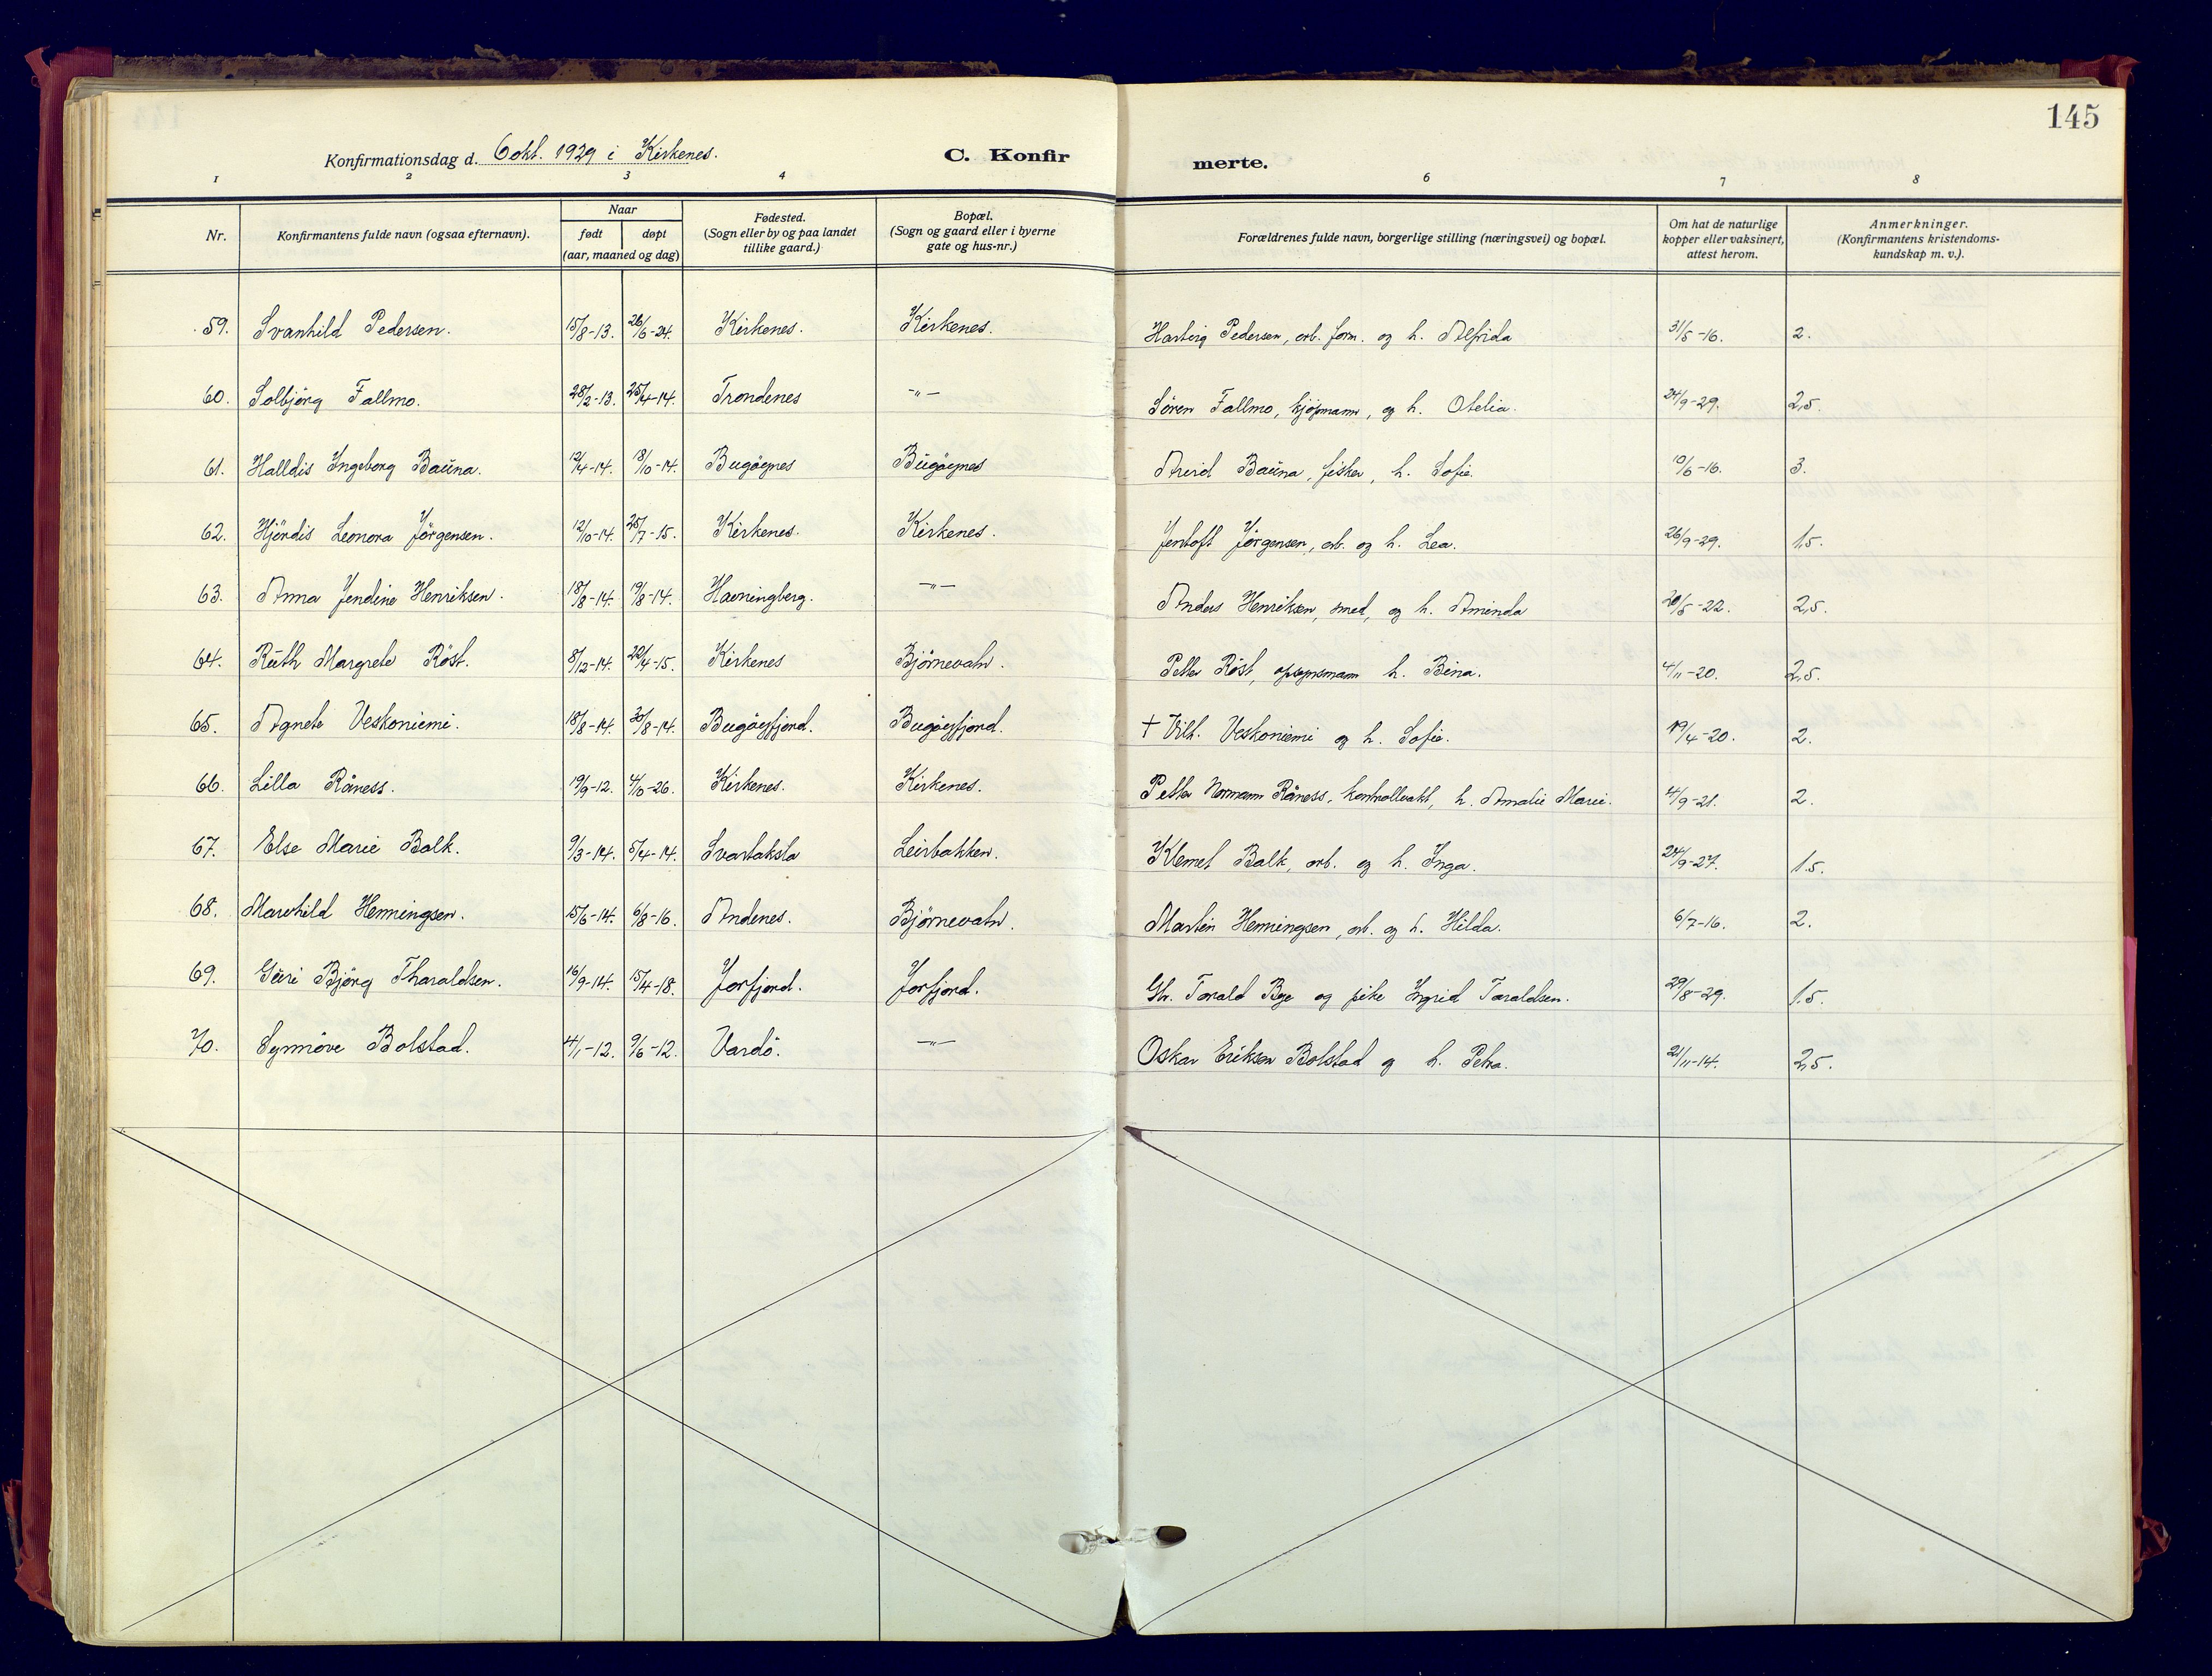 145
Konfirmationsdag d. 6 okt. 1929 i Kirkenes.
C. Konfirmerte.
1 2 3 4 6 7 8
Nr. Konfirmantens fulde navn (ogsaa efternavn). Naar født døpt (aar, maaned og dag) Fødested. (Sogn eller by og paa landet tillike gaard.) Bopæl. (Sogn og gaard eller i byerne gate og hus-nr.) Forældrenes fulde navn, borgerlige stilling (næringsvei) og bopæl. Om hat de naturlige kopper eller vaksinert, attest herom. Anmerkninger. (Konfirmantens kristendoms-kundskap m. v.).
59. Svanhild Pedersen. 15/8-13. 26/6-24. Kirkenes. Kirkenes. Hartvig Pedersen, arb. form. og h. Alfrida 31/5-16. 2.
60. Solbjörg Fallmo. 28/2-13. 25/4-14. Trondenes -"- Sören Fallmo, kjöpmann, og h. Otelia. 24/9-29. 2,5.
61. Halldis Ingeborg Baŭna. 12/4-14. 18/10-14. Bugöynes Bŭgöynes Arvid Baŭna, fisker, h. Sofie. 10/6-16. 3.
62. Hjördis Leonora Jörgensen. 12/10-14. 25/7-15. Kirkenes. Kirkenes. Jentoft Jörgensen, arb. og h. Lea. 26/9-29. 1,5.
63. Anna Jendine Henriksen. 18/8-14. 19/8-14. Havningberg. -"- Anders Henriksen, smed, og h. Aminda 20/5-22. 2,5.
64. Rŭth Margrete Röst. 8/12-14. 20/4-15. Kirkenes Björnevatn. Petter Röst, opsynsmann h. Bina. 4/11-20. 2,5.
65. Agnete Veskoniemi. 18/8-14. 30/8-14. Bugöyfjord. Bugöyfjord. † Vilh. Veskoniemi og h. Sofie. 19/4-20. 2.
66. Lilla Råness. 19/9-12. 4/10-26. Kirkenes. Kirkenes. Petter Normann Råness, kontrollvakt, h. Amalie Marie. 4/9-21. 2.
67. Else Marie Balk. 9/3-14. 5/4-14. Svartaksla Leirbakken. Klemet Balk, arb. og h. Inga. 24/9-27. 1.5.
68. Marehild Henningsen. 15/6-14. 6/8-16. Andenes. Björnevatn. Martin Henningsen, arb. og h. Hilda. 6/7-16. 2.
69. Gŭri Björg Tharaldsen. 16/9-14. 15/4-18. Jarfjord. Jarfjord. Torald Bye og pike Ingrid Taraldsen. 29/8-29. 1.5.
70. Synnöve Bolstad. 4/1-12. 9/6-12. Vardö. -"- Oskar Eriksen Bolstad og h. Petra. 21/11-14. 2,5.